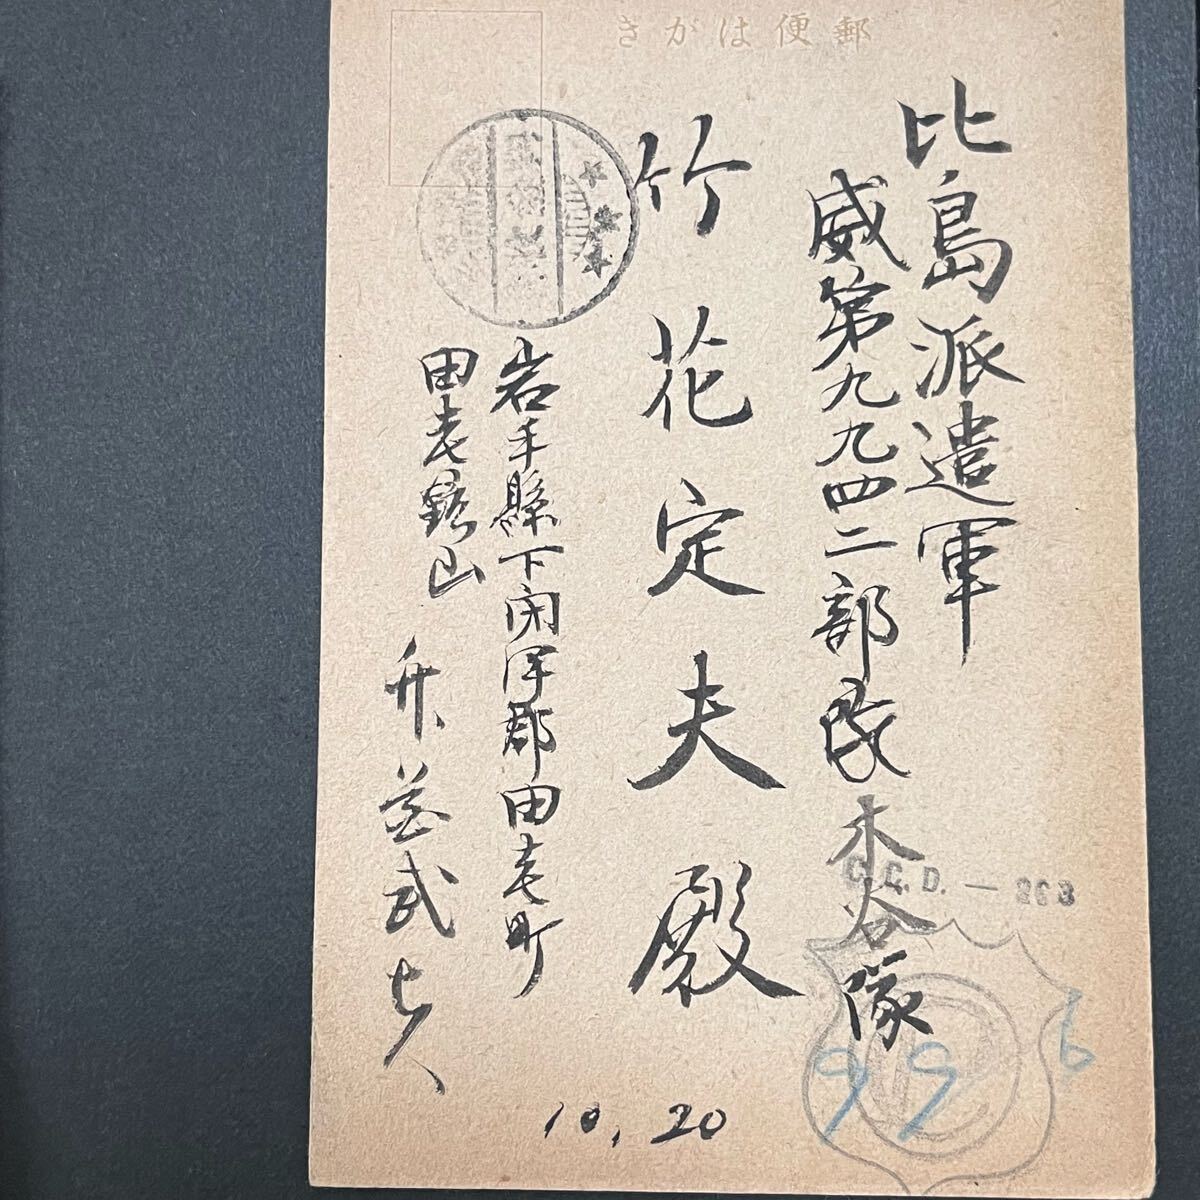 郵便はがき
比島派遣軍
威第九九四二部隊
木谷隊
竹花定夫殿
岩手縣下閉伊郡田老町
田老鑛山
10,20
C.C.D. — 263
99